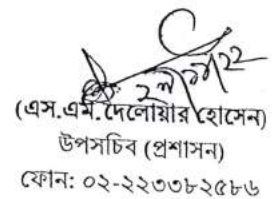 (এস.এম. দেলোয়ার হোসেন)
উপসচিব (প্রশাসন)
ফোন: ০২-২২৩৩৮২৫৮৬